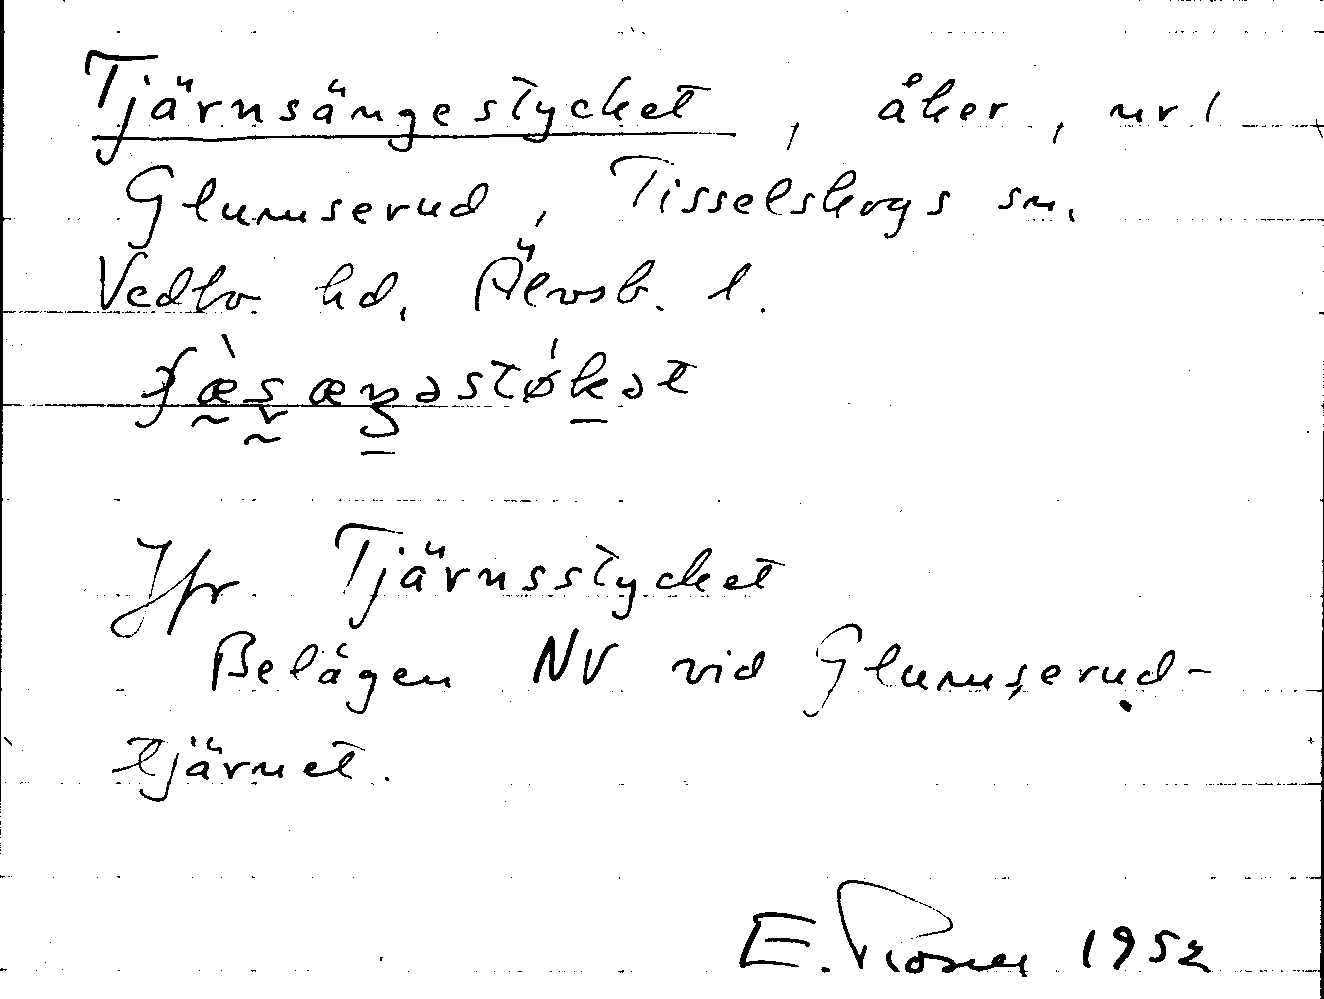 Tjärnsängestycket, åker, nr 1
Glumserud, Tisselskogs sn.
Vedbo hd, Älvsb. l.
Jfr Tjärnsstycket
Belägen NV vid Glumserud-
tjärnet.
E. 1952